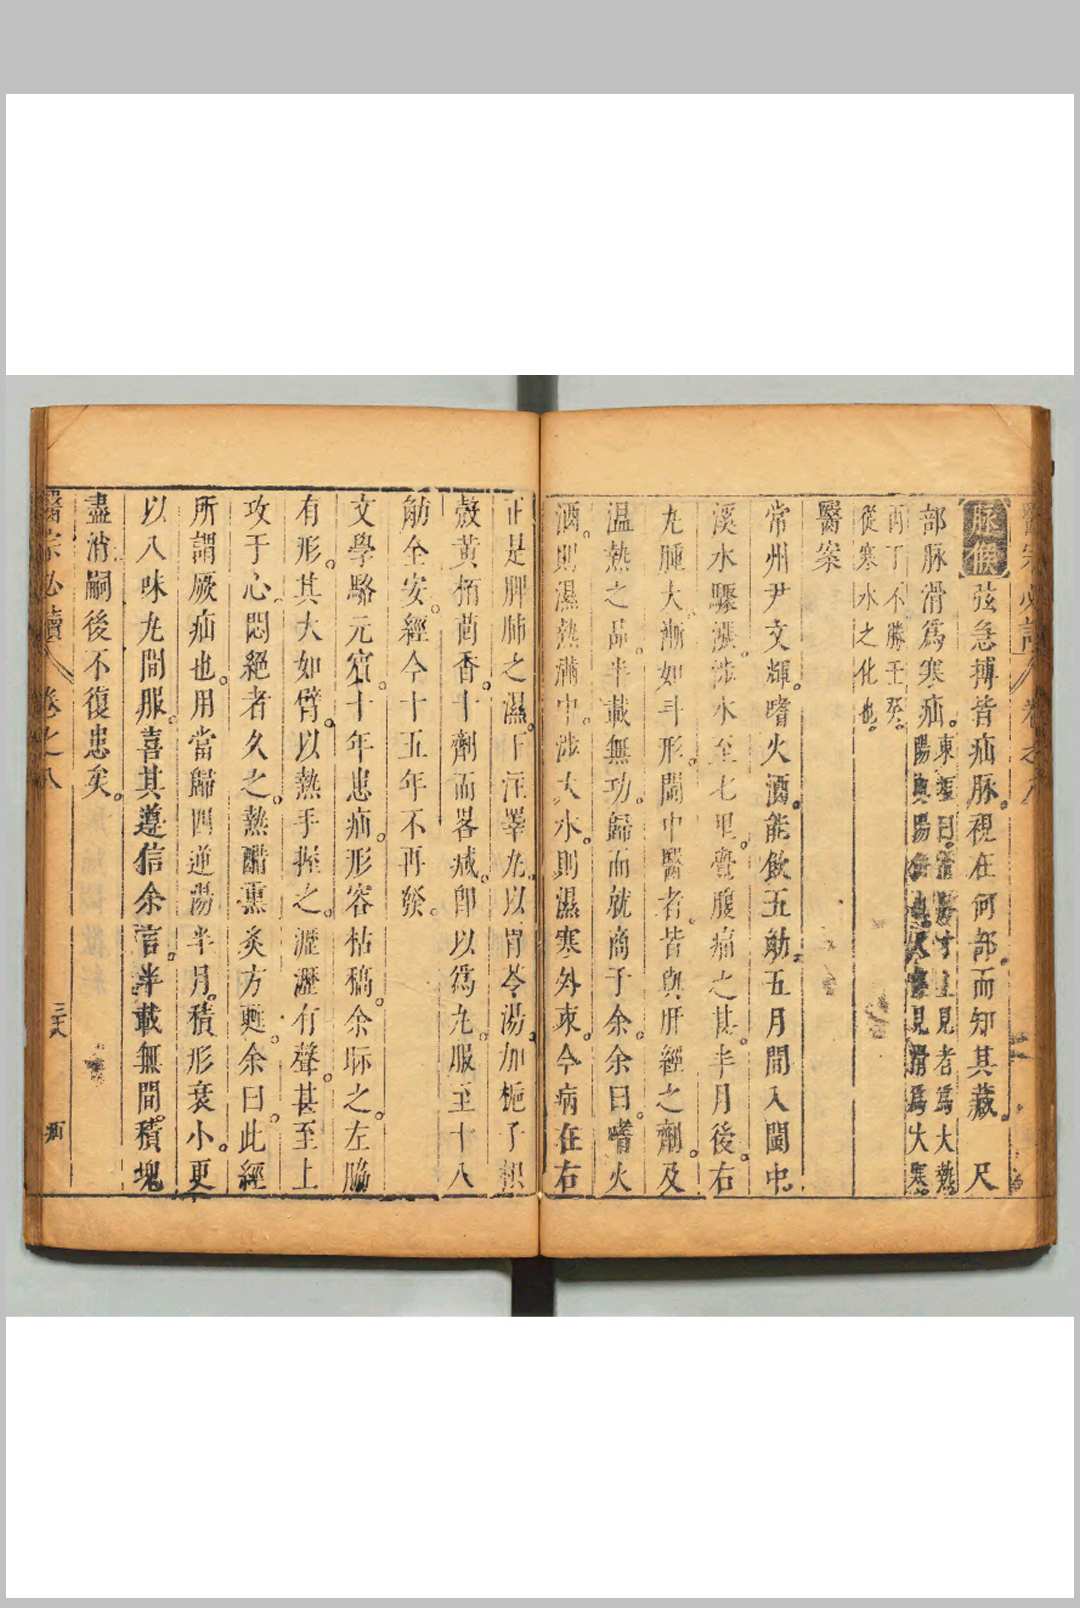 脉候弦急搏皆疝脉。視在何部。而知其藏。尺
部脉滑爲寒疝。東垣曰。寸上見者爲大熱
陽與陽見滑爲大寒。
丙丁不勝壬癸。
從寒水之化也。
醫案
常州尹文輝。嗜火酒。能飲五觔。五月間入閩中。
溪水驟漲。涉水至七里。覺腹痛之甚。半月後。右
丸腫大。漸如斗形。閩中醫者。皆與肝經之劑。及
温熱之品。半載無功。歸而就商于余。余曰。嗜火
酒。則濕熱滿中。涉大水。則濕寒外束。今病在右
正是脾肺之濕。下注睪丸。以胃苓湯。加梔子枳
殼黃栢茴香。十劑而畧减。卽以爲丸。服至十八
觔全安。經今十五年不再發。
文學駱元賓。十年患疝。形容枯稿。余眎之。左脇
有形。其大如臂。以熱手握之。瀝瀝有聲。甚至上
攻于心。悶絕者久之。熱醋熏炙方甦。余曰。此經
所謂厥疝也。用當歸四逆湯。半月。積形衰小。更
以八味丸間服。喜其遵信余言。半載無間。積塊
盡消。嗣後不復患矣。
醫宗必讀
卷之八
三十八